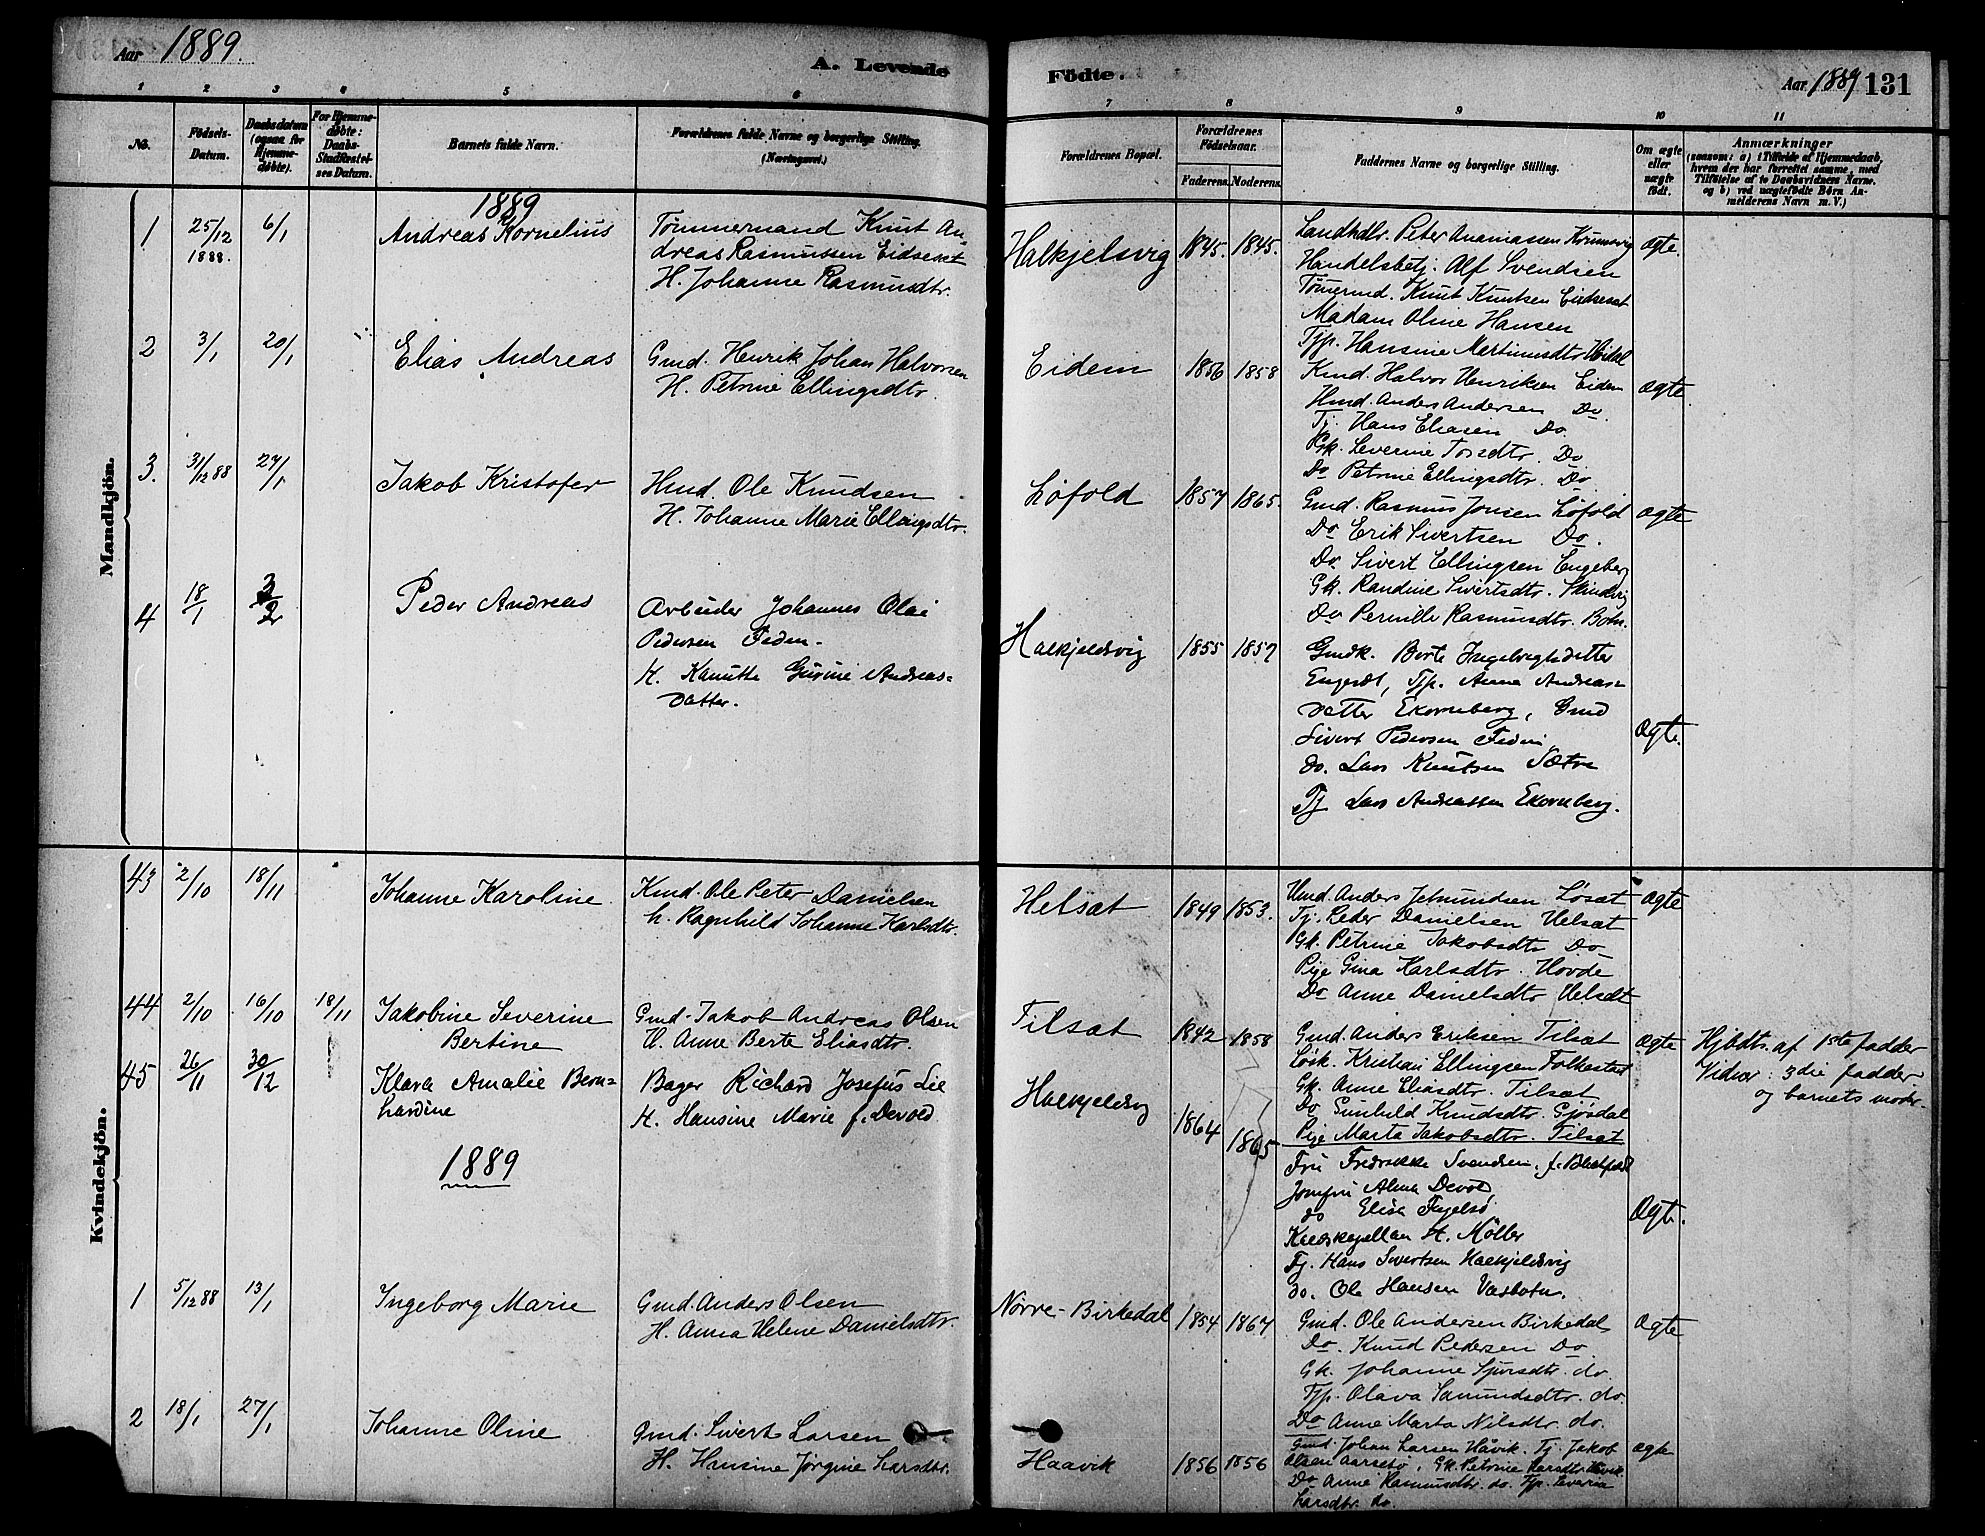 Aar 1889.
A. Levende Födte.
Aar 1889 131
1 2 3 4 5 6 7 8 9 10 11
No.
Födsels-Datum.
Daabsdatum (ogsaa for Hjemme-døbte).
For Hjemme-døbte: Daabs-Stadfæstel-ses Datum.
Barnets fulde Navn.
Forældrenes fulde Navne og borgerlige Stilling. (Næringsvei.)
Forældrenes Bopæl.
Forældrenes Födselsaar.
Faderens. Moderens.
Faddernes Navne og borgerlige Stilling.
Om ægte eller uægte født.
Anmærkninger
(saasom: a) i Tilfælde af Hjemmedaab, hvem der har forrettet samme, med Tilføielse af to Daabsvidners Navne. og b) ved uægtefødte Børn Anmelderens Navn m. V.)
Mandkjön.
1889
1 25/12 1888. 6/1 Andreas Kornelius
Tømmermand Knut An-
dreas Rasmussen Eidseset
H. Johanne Rasmusdtr.
Halkjelsvig 1845. 1845.
Landhdlr. Peter Ananiassen
Handelsbetj. Alf Svendsen
Tømrmd. Knut Knutsen Eidseset
Madam Oline Hansen
Tjp. Hansine Martinusdtr
ægte.
2 3/1 20/1 Elias Andreas
Gmd. Henrik Johan Halvorsen
H. Petrine Ellingsdtr.
Eidem 1856 1858
Kmd. Halvor Henriksen Eidem
Hmd. Anders Andersen Do.
Tj. Hans Eliasen Do.
Gk. Severine Do
Do Petrine Ellingsdtr. Do
ægte.
3. 31/12 88 27/1 Jakob Kristofer
Hmd. Ole Knudsen
H. Johanne Marie Ellingsdtr.
Løfold 1857 1865.
Gmd. Rasmus Jonsen Løfold
Do Erik Sivertsen Do.
Do. Sivert Ellingsen Engeberg
Gk. Randine Sivertsdtr.
Do Pernille Rasmusdtr. Botn.
ægte
4 18/1 3/2 Peder Andreas
Arbeider Johannes Olai
Pedersen
H. Kanutte Gurine Andreas=
datter.
Halkjeldsvig 1855 1857
Gmdk. Berte Ingebrigtsdatter
Engeset, Tjp. Anna Andreas=
datter Ekorneberg, Gmd
Sivert Pedersen
do. Lars Knutsen Sætre
Tj Lars Andreassen Ekorneberg.
ægte.
Kvindekjön.
43 2/10 18/11 Johanne Karoline.
Kmd. Ole Peter Danielsen
h. Ragnhild Johanne Karlsdtr.
Helsæt 1849 1853.
Hmd. Anders Jetmundsen Løsæt
Tj. Peder Danielsen Helsæt
Gk. Petrine Jakobsdtr Do
Pige Gina Karlsdtr. Hovde
Do Anne Danielsdtr Helsæt
ægte
44 2/10 16/10 18/11 Jakobine Severine
Bertine
Gmd. Jakob Andreas Olsen
H. Anne Berte Eliasdtr.
Tilsæt 1842 1858
Gmd. Anders Eriksen Tilsæt
Løsk. Kristian Ellingsen Folkestad
Gk. Anne Eliasdtr. Tilsæt
Do Gunhild Knudsdtr. Gjøsdal
Pige Marta Jakobsdtr. Tilsæt
ægte
Hjbdt. af 1ste fadder
Vidner: 3die fadder
og barnets moder.
45 26/11 30/12 Klara Amalie Bern=
hardine
Bager Richard Josefus Lie
H. Hansine Marie f. Devold
Halkjeldsvig 1864 1865
Fru Fredrikke Svendsen f.
Jomfru Alma Devold
do Elise
Kaldskapellan H. Møller
Tj. Hans Sivertsen Halkjeldsvig
do. Ole Hansen Vasbotn.
ægte.
1889
1 5/12 88 13/1 Ingeborg Marie
Gmd. Anders Olsen
H. Anna Helene Danielsdtr.
Nörre-Birkedal 1854 1867
Gmd. Ole Andersen Birkedal
Do. Knud Pedersen Do
Gk. Johanne Sjursdtr. do.
Tjp. Olava Samundsdtr. do.
Do Anne Marta Nilsdtr. do.
ægte
2 18/1 27/1 Johanne Oline
Gmd. Sivert Larsen
H. Hansine Jørgine Larsdtr.
Haavik 1856 1856
Gmd. Johan Larsen Håvik. Tj. Jakob
Olsen Aarsetø, Gk. Petrine Larsdtr. Håvik.
Do Anne Rasmusdtr. do. Tjp. Severine
Larsdtr. do.
ægte